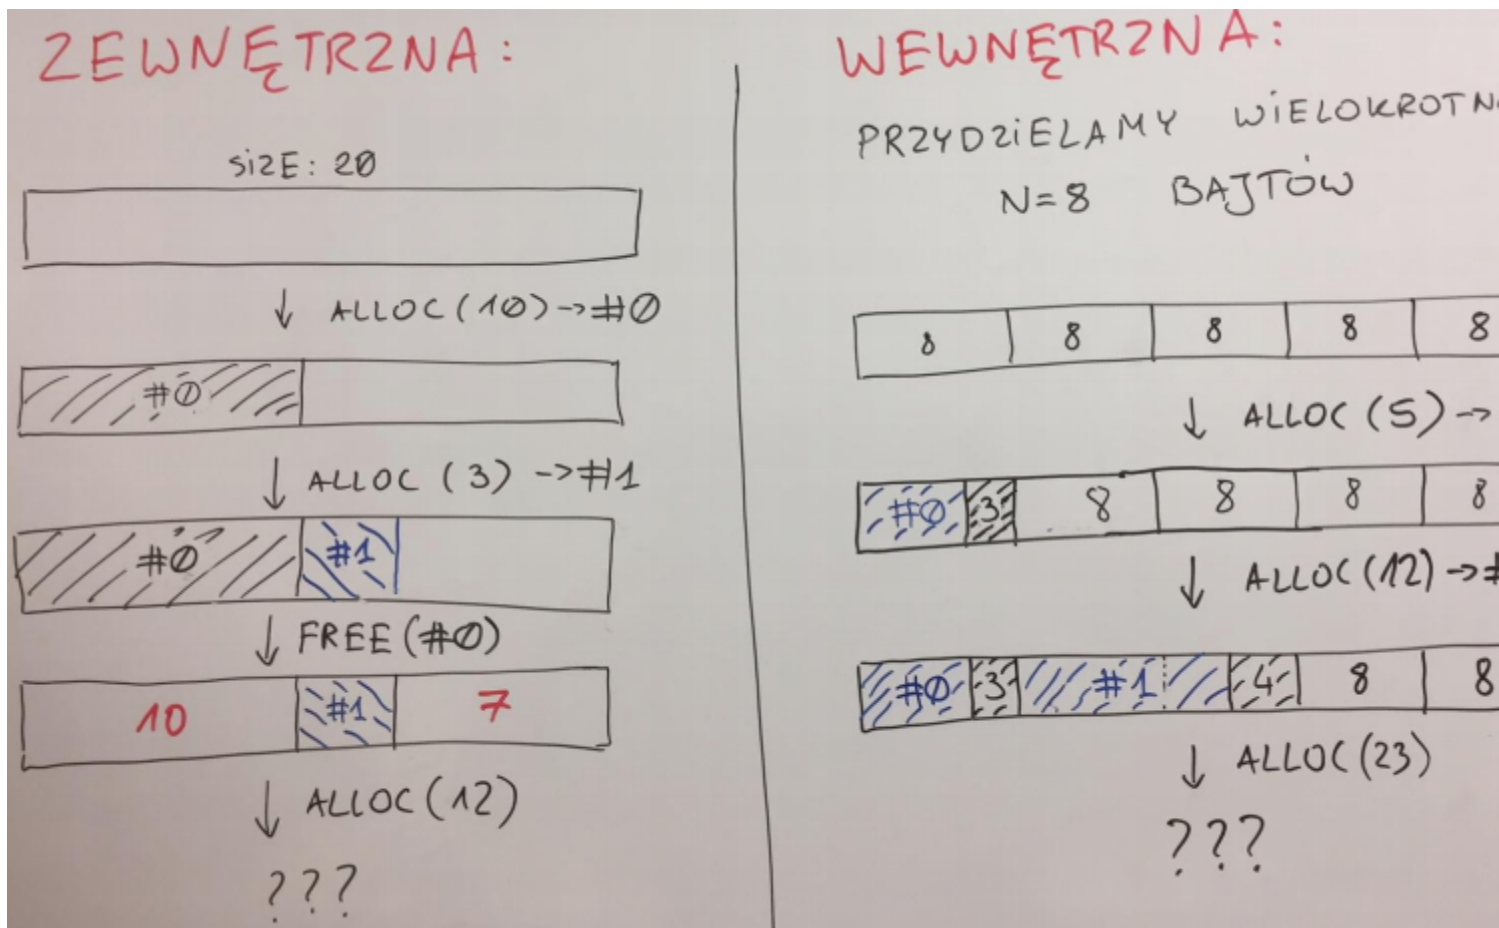 ZEWNĘTRZNA:
SIZE: 20
↓ ALLOC (10) -> #0
#0
↓ ALLOC (3) -> #1
#0 #1
↓ FREE (#0)
10 #1 7
↓ ALLOC (12)
???
WEWNĘTRZNA:
PRZYDZIELAMY WIELOKROTN
N=8 BAJTÓW
8 8 8 8 8
↓ ALLOC (5) ->
#0 3 8 8 8 8
↓ ALLOC (12) -> #
#0 3 #1 4 8 8
↓ ALLOC (23)
???